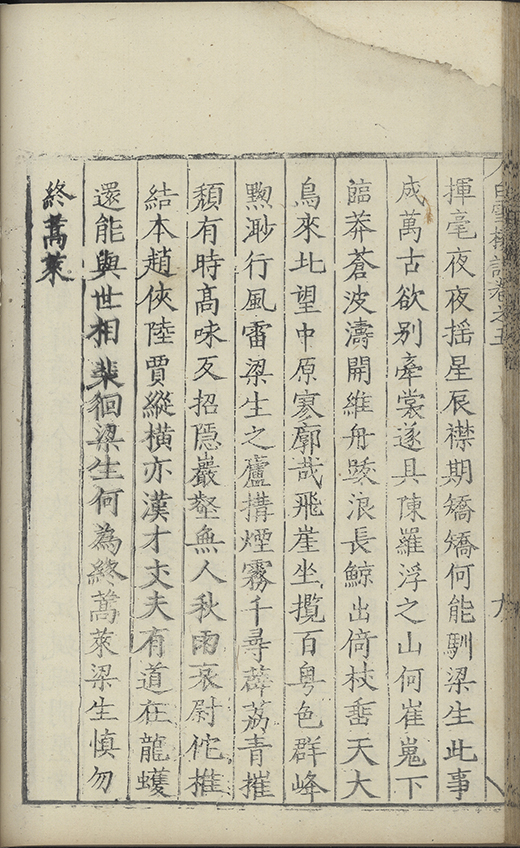 白雪樓詩卷之五
九
揮毫夜夜揺星辰襟期矯矯何能馴梁生此事
成萬古欲别牽裳遂具陳羅浮之山何崔嵬下
臨莽蒼波濤開維舟踆浪長鯨出倚杖垂天大
鳥來北望中原寥廓哉飛崖坐攬百粤色群峰
黝渺行風雷梁生之廬搆煙霧千尋薜荔青摧
頺有時髙味反招隱巖壑無人秋雨哀尉佗椎
結本趙俠陸賈縱横亦漢才丈夫有道在龍蠖
還能與世相裴徊梁生何為終蒿萊梁生慎勿
終蒿萊